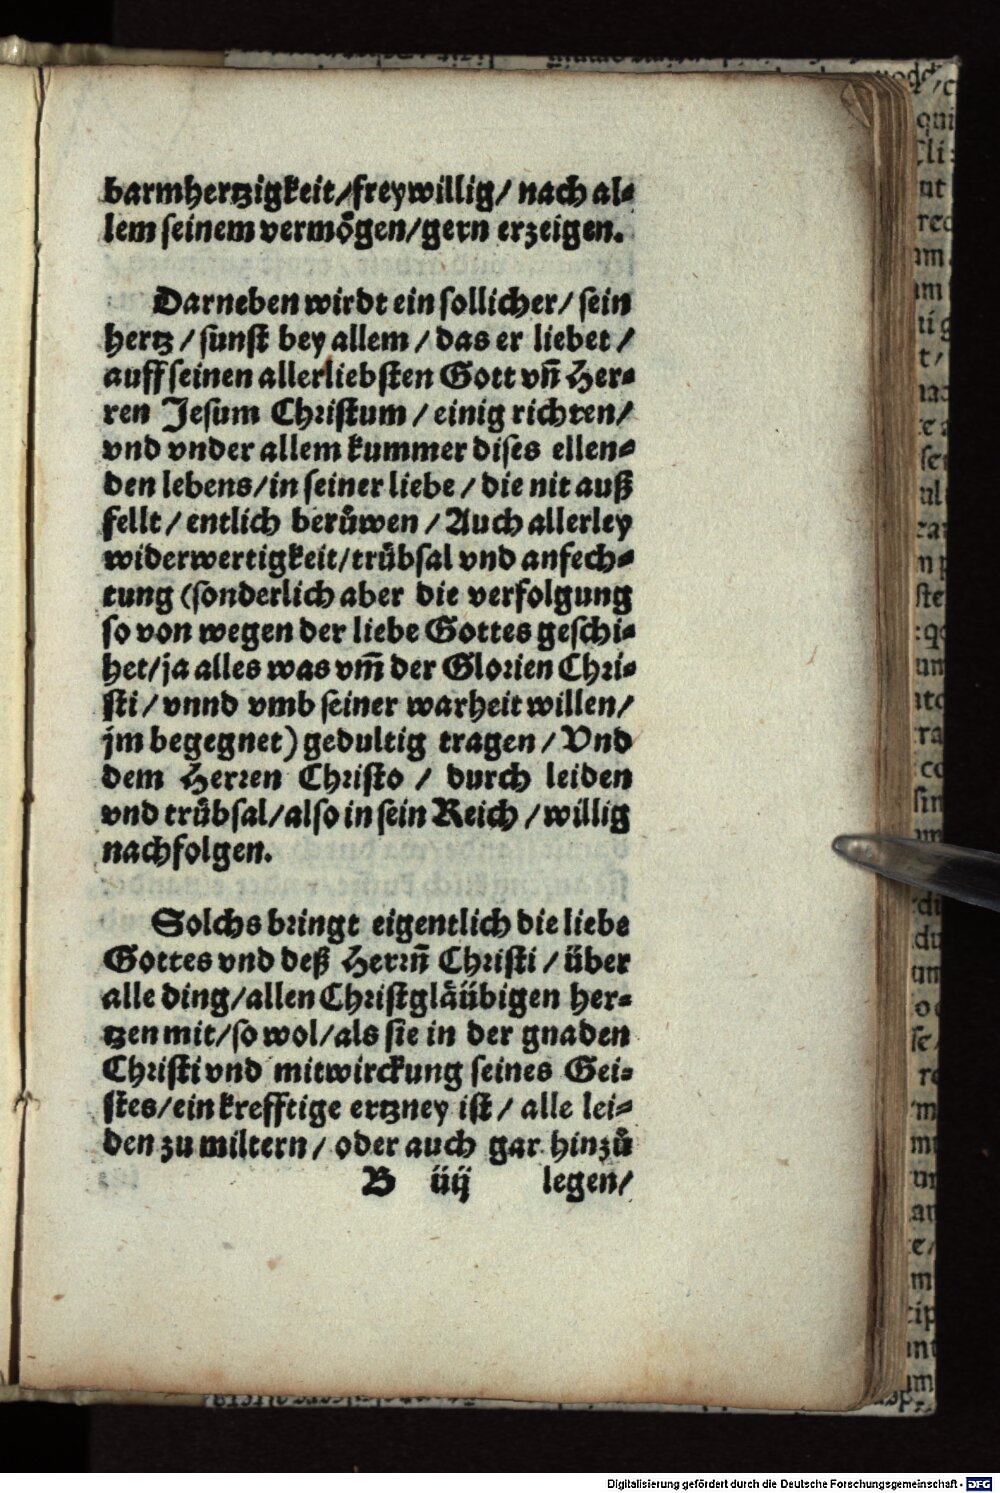 barmhertzigkeit/freywillig/ nach al-
lem seinem vermoͤgen/gern erzeigen.
Darneben wirdt ein sollicher/ sein
hertz / sunst bey allem / das er liebet /
auff seinen allerliebsten Gott vn̄ Her-
ren Jesum Christum / einig richten/
vnd vnder allem kummer dises ellen-
den lebens/in seiner liebe / die nit auß
fellt / entlich beruͦwen / Auch allerley
widerwertigkeit/truͤbsal vnd anfech-
tung (sonderlich aber die verfolgung
so von wegen der liebe Gottes geschi-
het/ja alles was vm̄ der Glorien Chri-
sti / vnnd vmb seiner warheit willen/
jm begegnet) gedultig tragen / Vnd
dem Herren Christo / durch leiden
vnd truͤbsal/also in sein Reich / willig
nachfolgen.
Solchs bringt eigentlich die liebe
Gottes vnd deß Herrn̄ Christi / über
alle ding/allen Christglaͤübigen her-
tzen mit/so wol/als sie in der gnaden
Christi vnd mitwirckung seines Gei-
stes/ein krefftige ertzney ist / alle lei-
den zu miltern / oder auch gar hinzuͦ
B iiij legen/
Digitalisierung gefördert durch die Deutsche Forschungsgemeinschaft - DFG